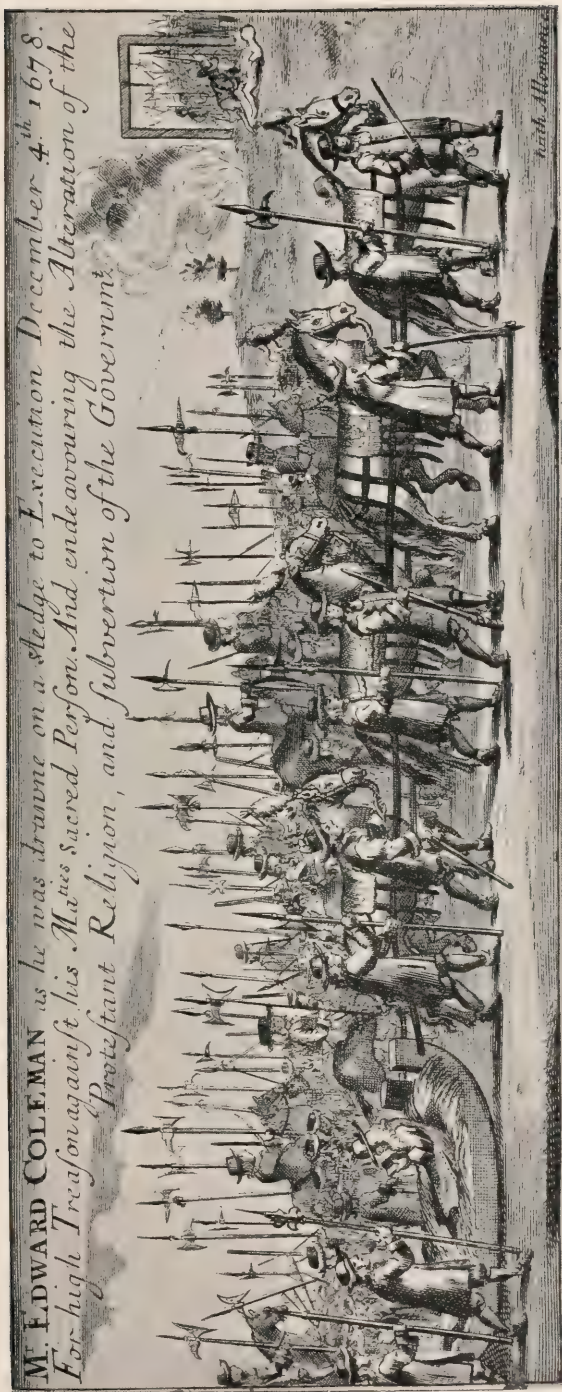 Mr. EDWARD COLEMAN as he was drawne on a sledge to Execution December 4.th 1678.
For high Treaſon againſt his Maties Sacred Perſon. And endeavouring the Alteration of the
Proteſtant Religion, and ſubvertion of the Governmt.
with Allowance